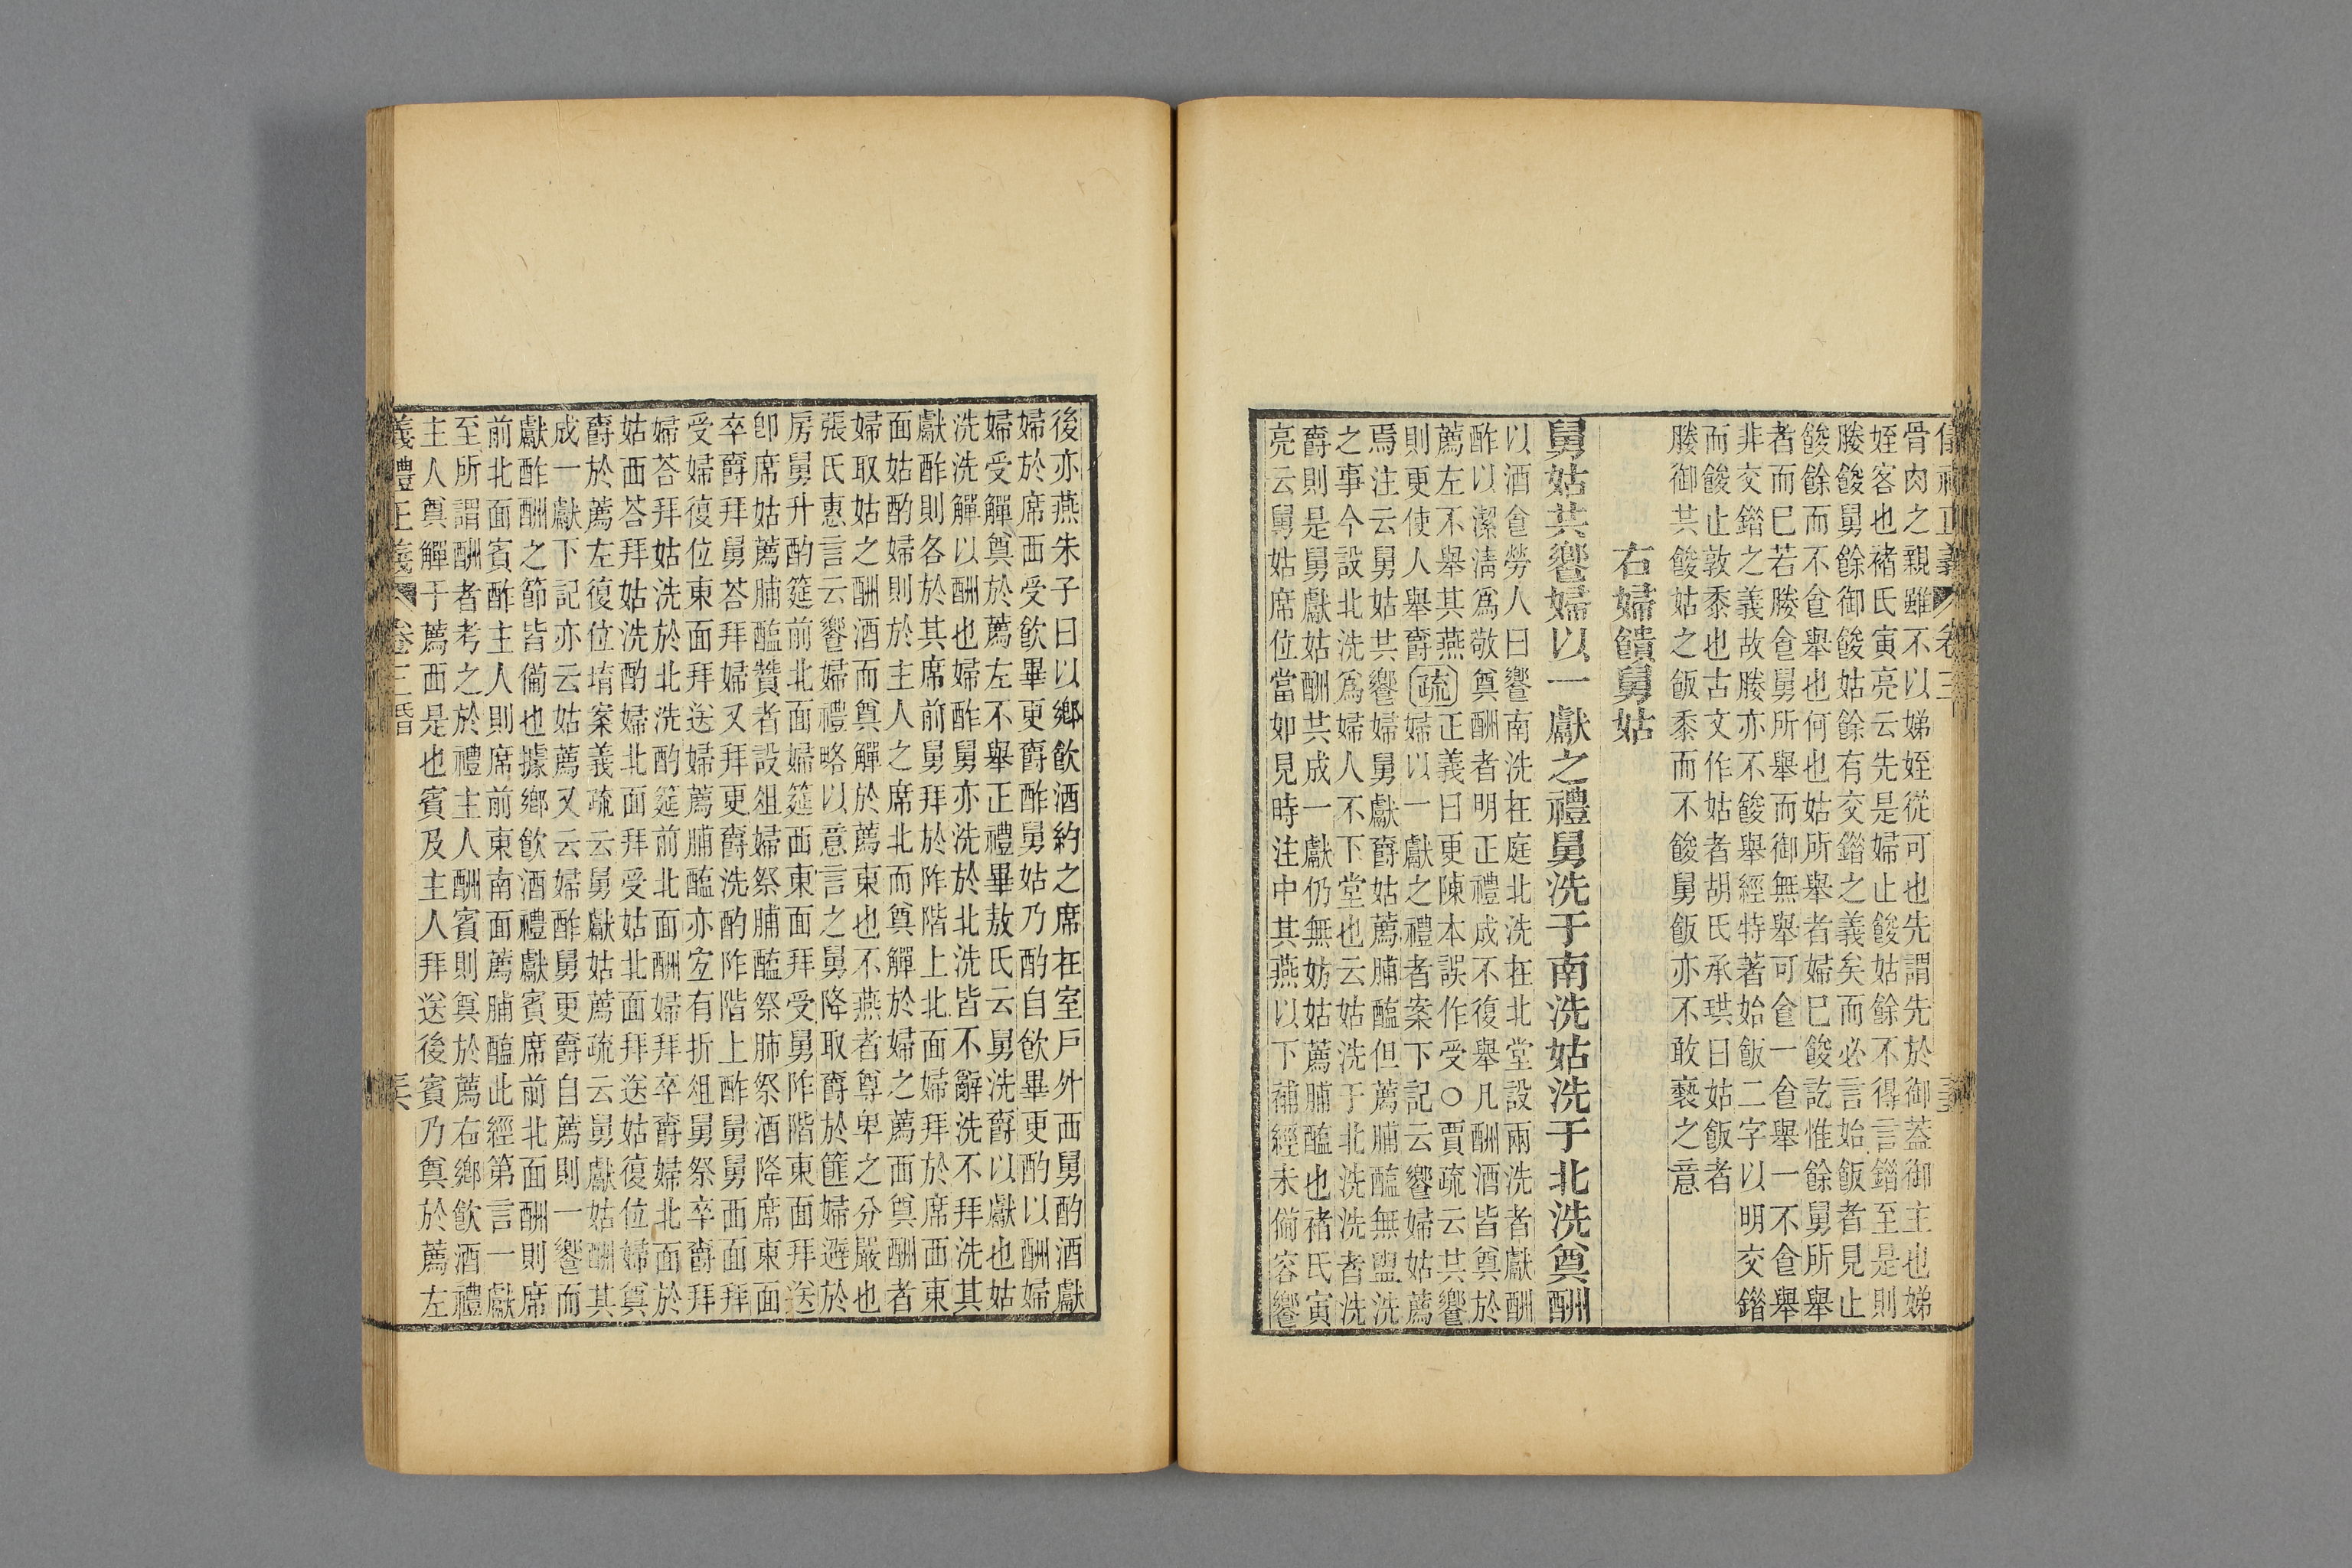 骨肉之親雖不以娣姪從可也先謂先於御蓋御主也娣
姪客也褚氏寅亮云先是婦止餕姑餘不得言錯至是則
媵餕舅餘御餕姑餘有交錯之義矣而必言始飯者見止
餕餘而不食舉也何也姑所舉者婦已餕訖惟餘舅所舉
者而已若媵食舅所舉而御無舉可食一食舉一不食舉
非交錯之義故媵亦不餕舉經特著始飯二字以明交錯
而餕止敦黍也古文作姑者胡氏承珙曰姑飯者
媵御共餕姑之飯黍而不餕舅飯亦不敢褻之意
右婦饋舅姑
舅姑共饗婦以一獻之禮舅洗于南洗姑洗于北洗奠酬
以酒食勞人曰饗南洗在庭北洗在北堂設兩洗者獻酬
酢以潔淸爲敬奠酬者明正禮成不復舉凡酬酒皆奠於
薦左不舉其燕
則更使人舉爵疏正義曰更陳本誤作受○賈疏云其饗
婦以一獻之禮者案下記云饗婦姑薦
焉注云舅姑共饗婦舅獻爵姑薦脯醢但薦脯醢無盥洗
之事今設北洗爲婦人不下堂也云姑洗于北洗洗者洗
爵則是舅獻姑酬共成一獻仍無妨姑薦脯醢也褚氏寅
亮云舅姑席位當如見時注中其燕以下補經未備容饗
後亦燕朱子曰以鄉飲酒約之席在室戶外西舅酌酒獻
婦於席西受飲畢更爵酢舅姑乃酌自飲畢更酌以酬婦
婦受觶奠於薦左不舉正禮畢敖氏云舅洗爵以獻也姑
洗洗觶以酬也婦酢舅亦洗於北洗皆不辭洗不拜洗其
獻酢則各於其席前舅拜於阼階上北面婦拜於席西東
面姑酌婦則於主人之席北而奠觶於婦之薦西奠酬者
婦取姑之酬酒而奠觶於薦東也不燕者尊卑之分嚴也
張氏惠言云饗婦禮略以意言之舅降取爵於篚婦避於
房舅升酌筵前北面婦筵西東面拜受舅阼階東面拜送
卽席姑薦脯醢贊者設俎婦祭脯醢祭肺祭酒降席東面
卒爵拜舅荅拜婦又拜更爵洗酌阼階上酢舅舅西面拜
受婦復位東面拜送婦薦脯醢亦宜有折俎舅祭卒爵拜
婦荅拜姑洗於北洗酌筵前北面酬婦拜卒爵婦北面於
姑西荅拜姑洗酌婦北面拜受姑北面拜送姑復位婦奠
爵於薦左復位堉案義疏云舅獻姑薦疏云舅獻姑酬其
成一獻下記亦云姑薦又云婦酢舅更爵自薦則一饗而
獻酢酬之節皆備也據鄉飲酒禮獻賓席前北面酬則席
前北面賓酢主人則席前東南面薦脯醢此經第言一獻
至所謂酬者考之於禮主人酬賓則奠於薦右鄉飲酒禮
主人奠觶于薦西是也賓及主人拜送後賓乃奠於薦左